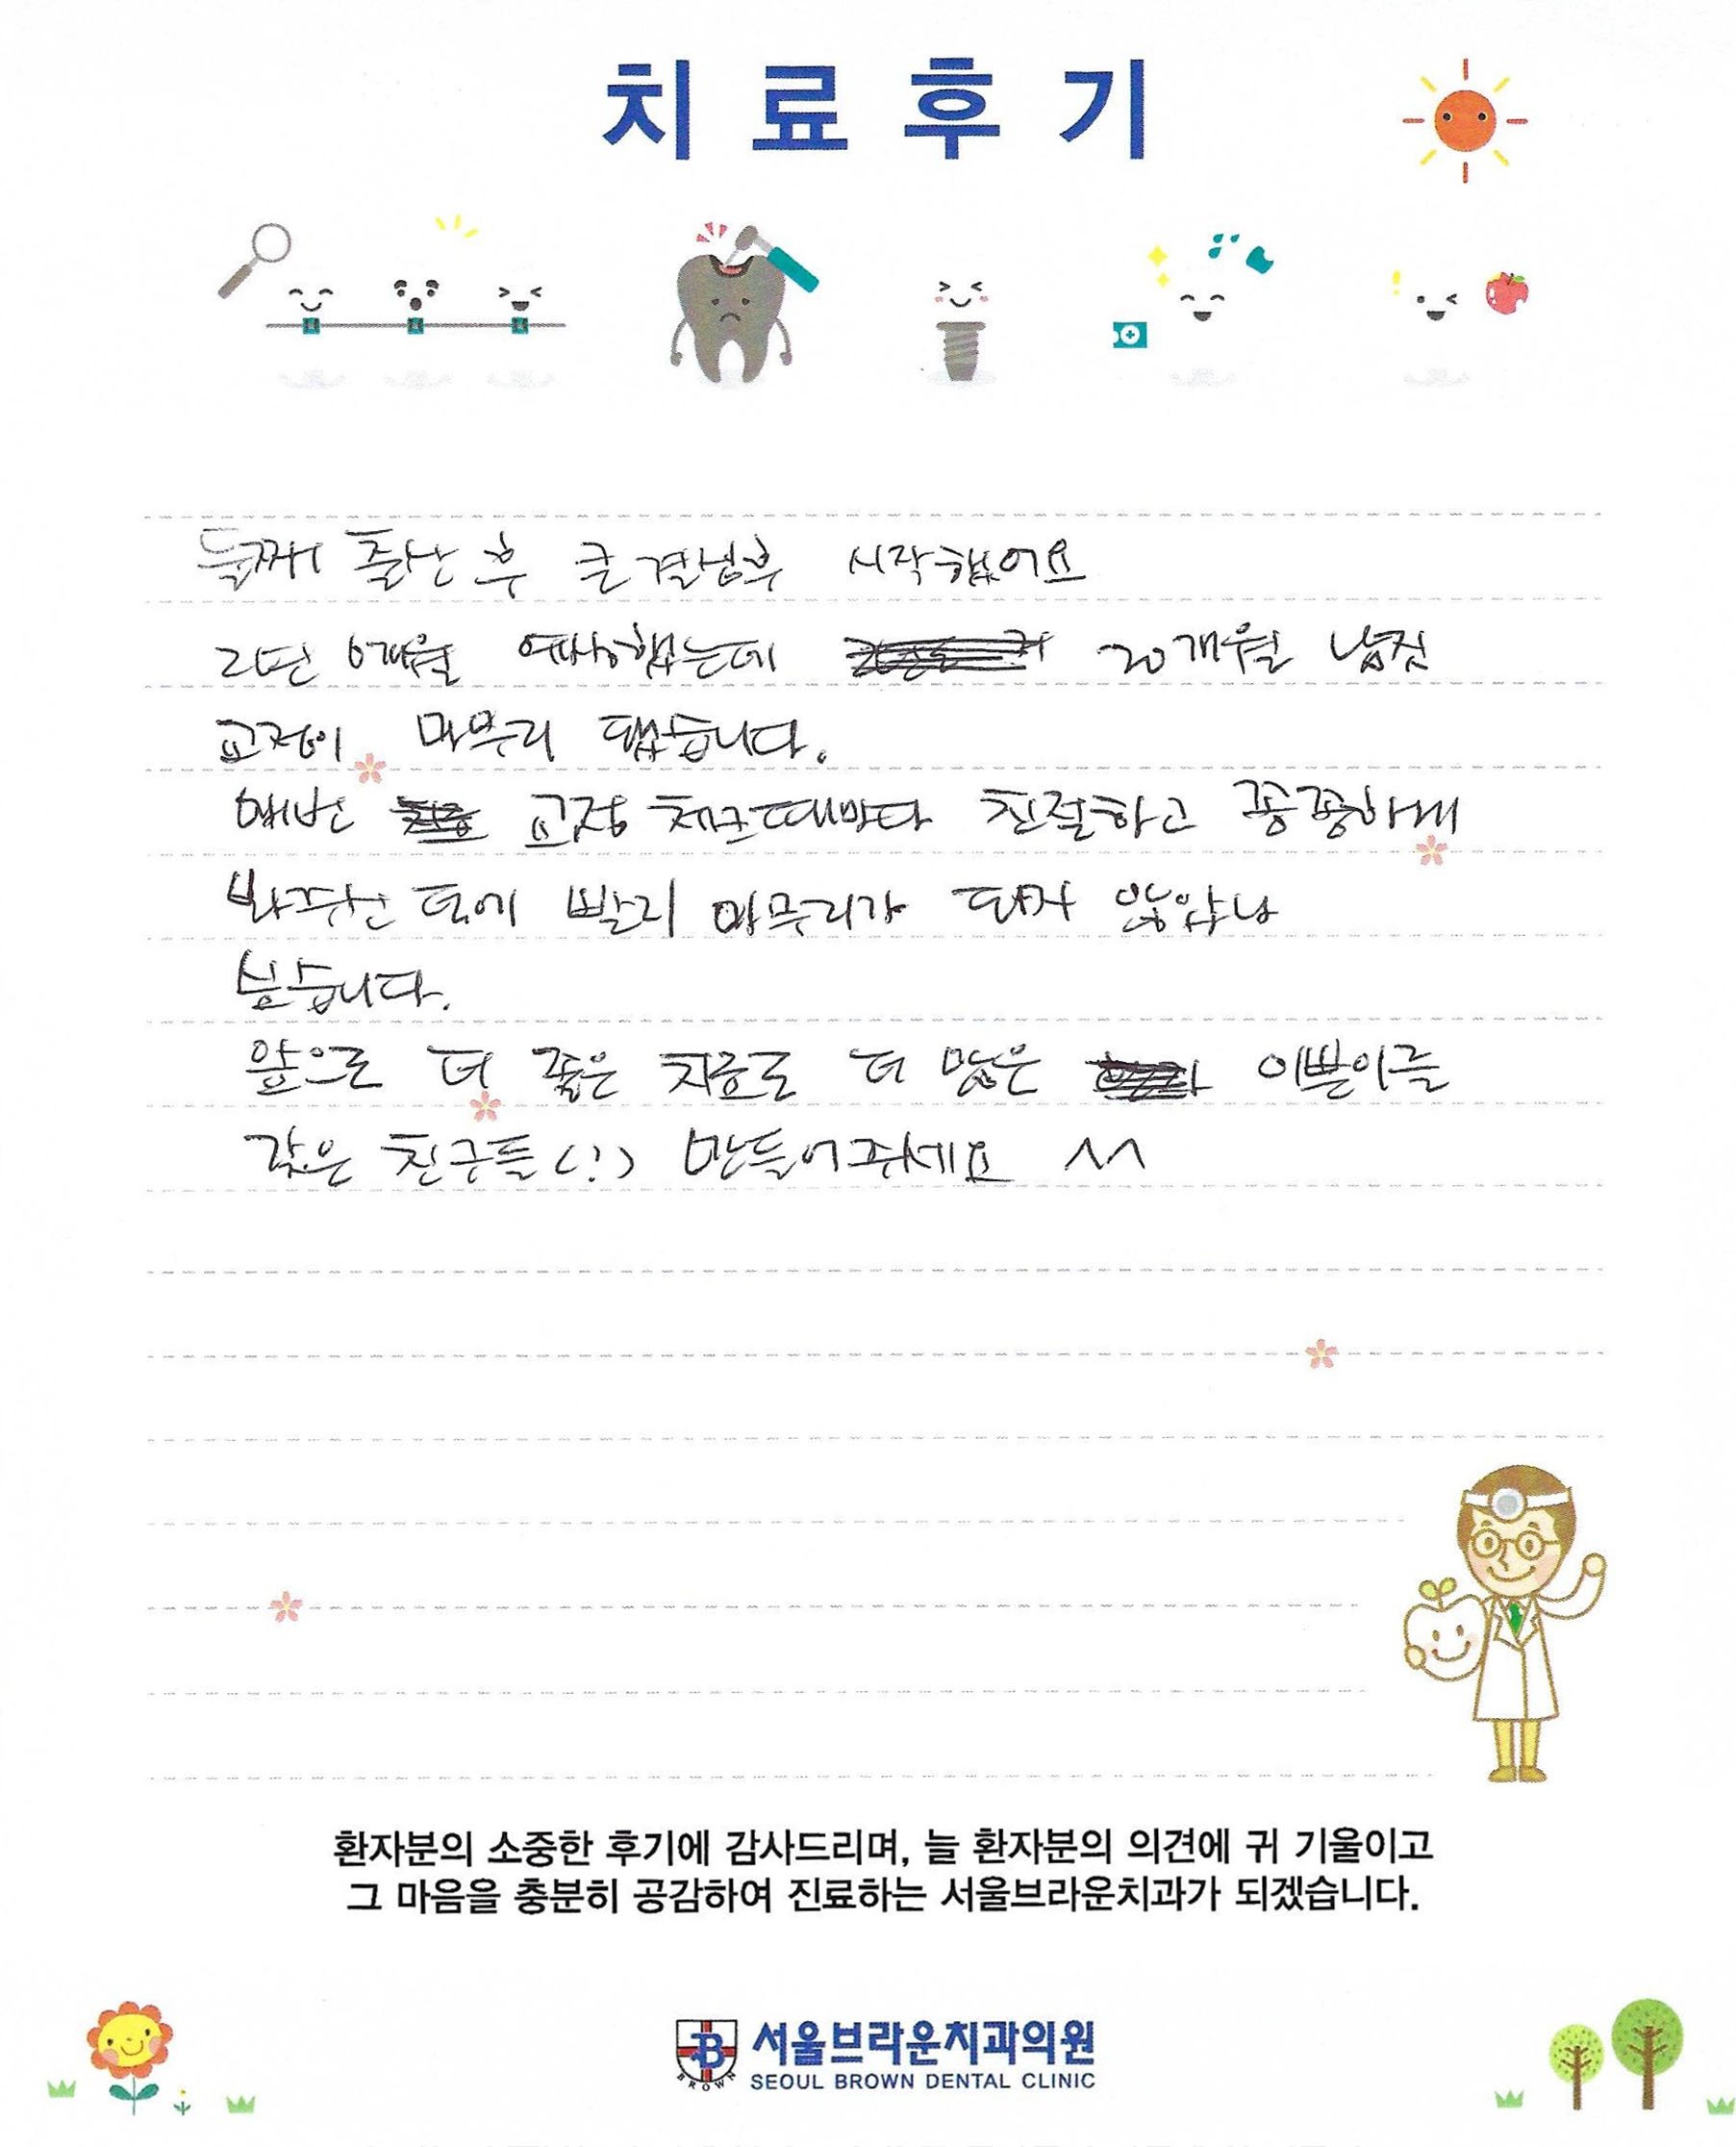 치료후기
둘째 출산 후 큰 결심후 시작했어요
2년 6개월 예상했는데 20개월 남짓
교정이 마무리 됐습니다.
매번 교정 체크때마다 친절하고 꼼꼼하게
봐주신 덕에 빨리 마무리가 되지 않았나
싶습니다.
앞으로 더 좋은 치료로 더 많은 이쁜이를
갖은 친구들(?) 만들어주세요 ^^
환자분의 소중한 후기에 감사드리며, 늘 환자분의 의견에 귀 기울이고
그 마음을 충분히 공감하여 진료하는 서울브라운치과가 되겠습니다.
B
BROWN
서울브라운치과의원
SEOUL BROWN DENTAL CLINIC